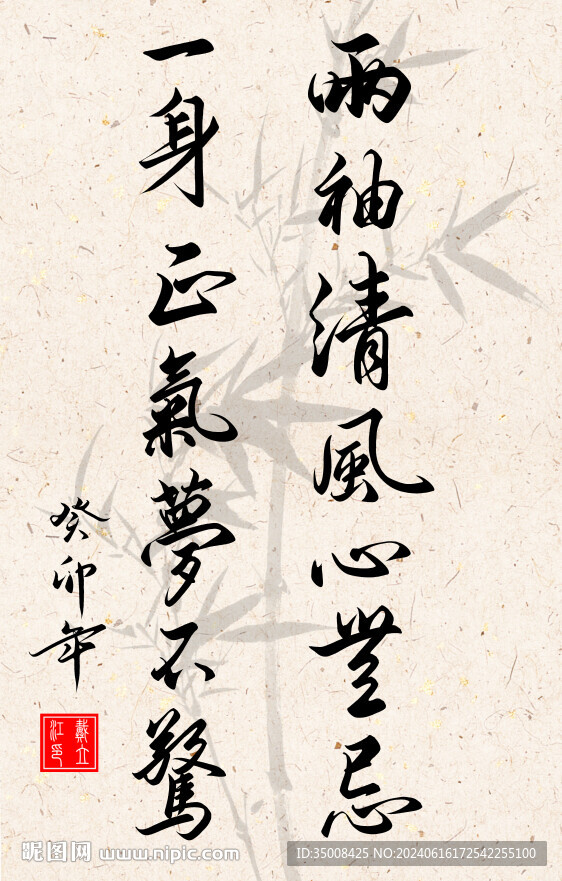 兩袖清風心無忌
一身正氣夢不驚
癸卯年
戴立江印
昵图网 www.nipic.com
ID:35008425 NO:20240616172542255100